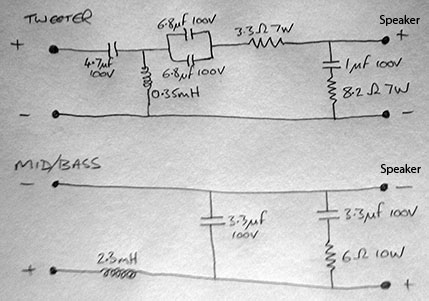 TWEETER
Speaker
+
6.8µf 100V
3.3Ω 7W
+
4.7µf
100V
6.8µf 100V
1µf 100V
0.35mH
8.2Ω 7W
−
−
MID/BASS
Speaker
−
−
3.3µf
100V
3.3µf 100V
2.3mH
6Ω 10W
+
+